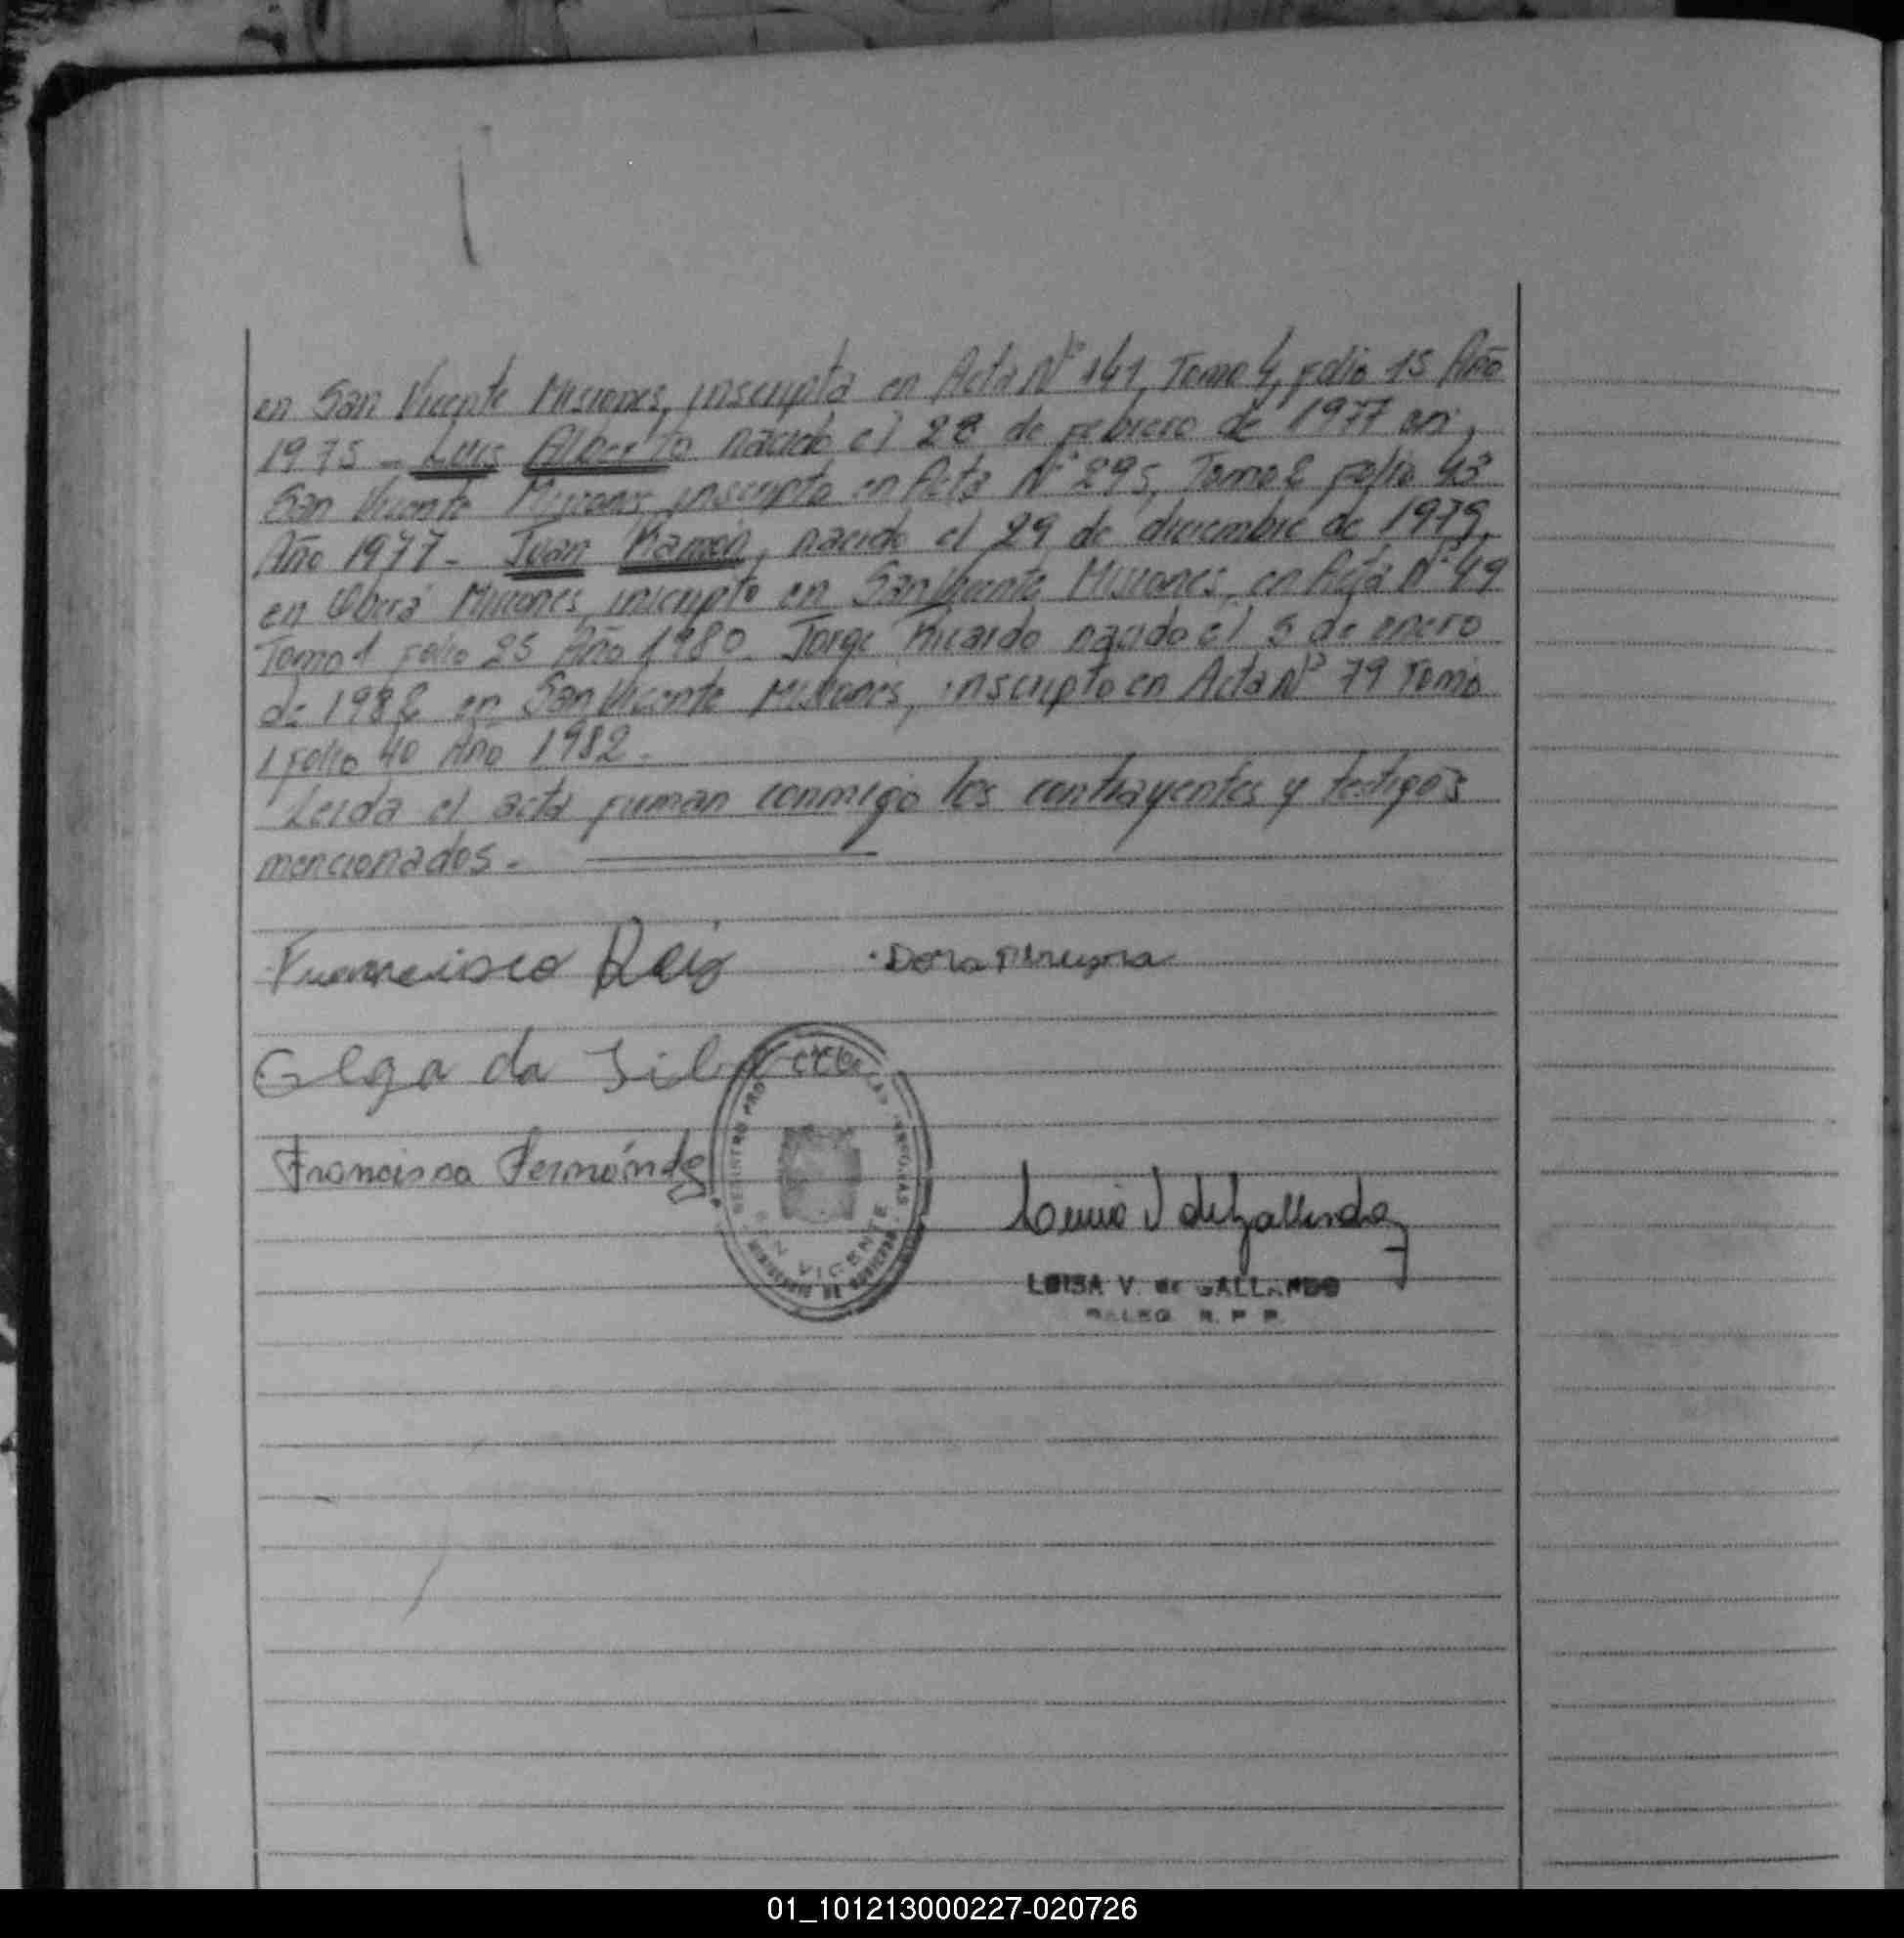 en San Vicente Misiones, inscripta en Acta Nº 141, Tomo 4, folio 15 Año
1975 - Luis Alberto nacido el 28 de febrero de 1977 en,
San Vicente Misiones inscripto en Acta Nº 295, Tomo 2 folio 43
Año 1977 - Juan Ramón, nacido el 29 de diciembre de 1979,
en Oberá Misiones, inscripto en San Vicente Misiones, en Acta Nº 49
Tomo 1 folio 25 Año 1980. Jorge Ricardo nacido el 5 de enero
de 1982 en San Vicente Misiones, inscripto en Acta Nº 79 Tomo
1 folio 40 Año 1982.-
Leida el acta firman conmigo los contrayentes y testigos
mencionados.-
Francisco Dora Pereyra
Olga da Silva
Francisca Fernández
REGISTRO PRO DE LAS PERSONAS
SAN VICENTE
de Gallardo
LUISA V. de GALLARDO
R. P. P.
01_101213000227-020726